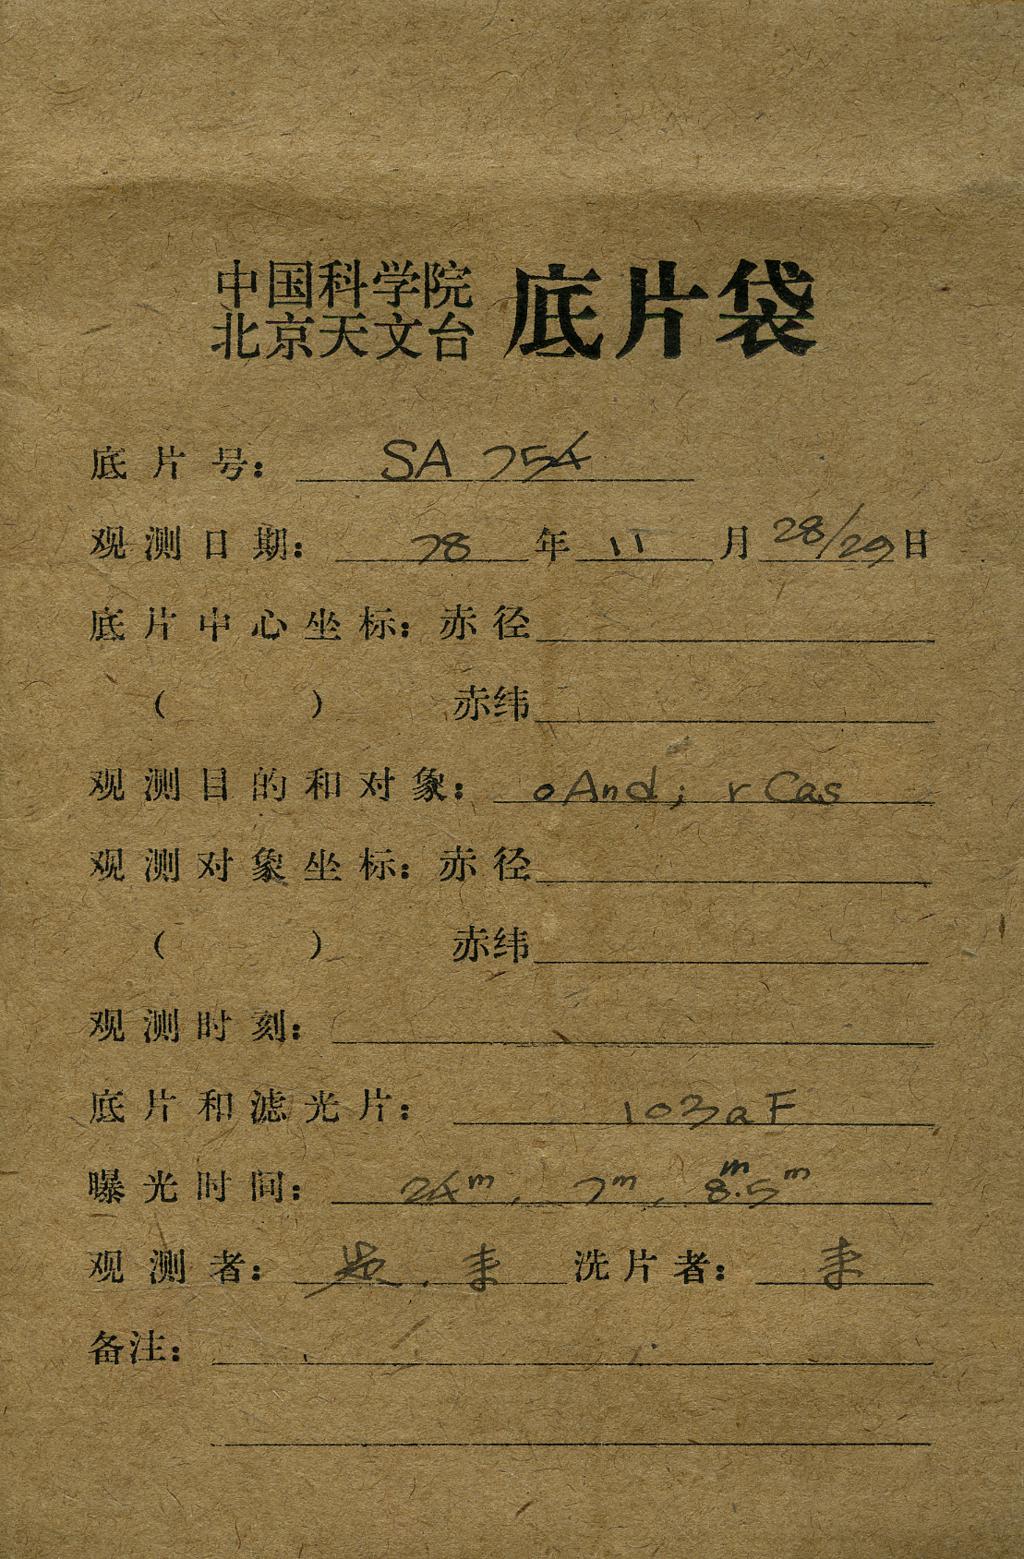 中国科学院
北京天文台 底片袋
底片号： SA 754
观测日期： 78 年 11 月 28/29 日
底片中心坐标：赤径
（ ） 赤纬
观测目的和对象： oAnd; r Cas
观测对象坐标：赤径
（ ） 赤纬
观测时刻：
底片和滤光片： 103aF
曝光时间： 24m, 7m, 8m.5m
观测者： 洗片者：
备注：